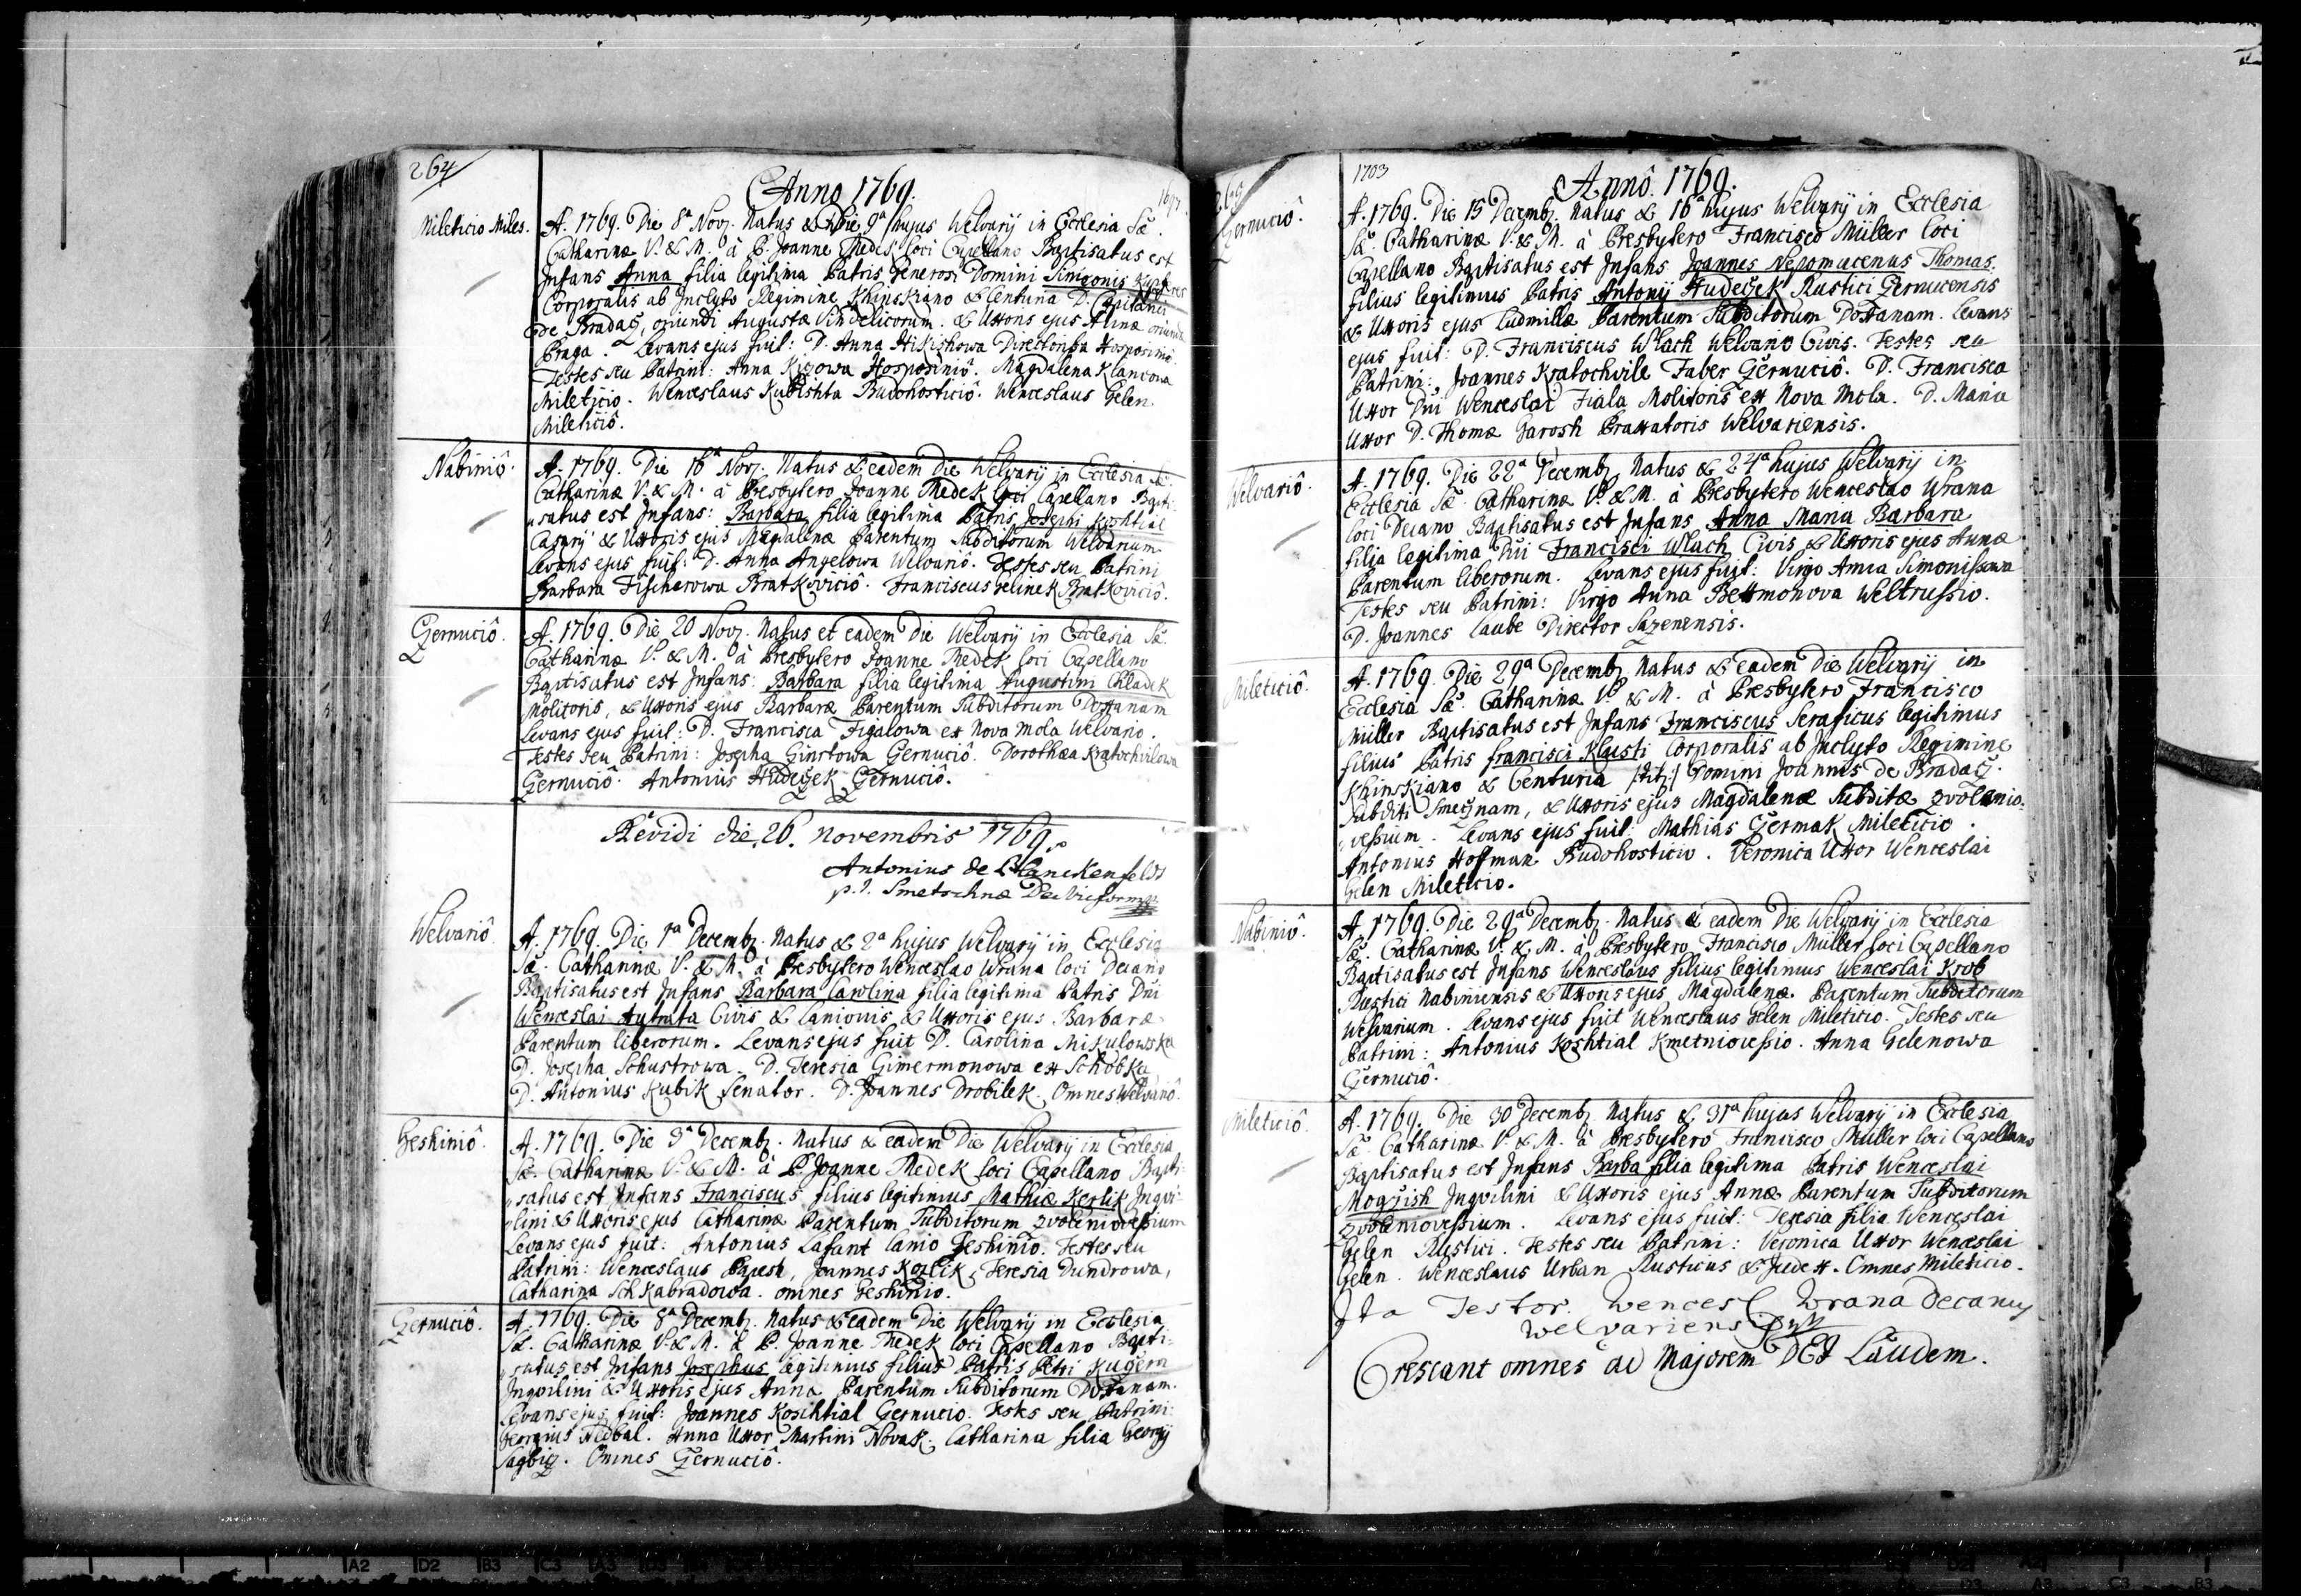 264
Anno 1769.
Mileticio Miles.
A. 1769. Die 8ª Novĵ. Natus & Die 9ª hujus Welvarij in Ecclesia Sæ.
Catharinæ V. & M. à P. Joanne Medek loci Capellano Baptisatus est
Infans Anna filia legitima Patris Generosi Domini Simeonis
Corporalis ab Inclyto Regimine Khinskiano & Centuria D. Capitanei
de Bradacz, oriundi Augustæ Vindelicorum. & Uxoris ejus Annæ oriundæ
Praga. Levans ejus fuit: D. Anna Directorissa Hosposinio.
Testes seu Patrini: Anna Hosposiniô. Magdalena Klancowa
Mileticio. Wenceslaus Kubishta Budohosticiô. Wenceslaus Gelen
Mileticiô.
Nabiniô.
A. 1769. Die 16ª Novĵ. Natus & eadem Die Welvarij in Ecclesia Sæ.
Catharinæ V. & M. à Presbytero Joanne Medek loci Capellano Bapti-
satus est Infans: Barbara filia legitima Patris Josephi Koshtial
Casarij & Uxoris ejus Magdalenæ Parentum Subditorum Welvarium.
Levans ejus fuit: D. Anna Angelowa Welvariô. Testes seu Patrini
Barbara Fischerowa Bratkoviciô. Franciscus Gelinek Bratkoviciô.
Gernuciô.
A. 1769. Die 20 Novĵ. Natus et eadem Die Welvarij in Ecclesia Sæ.
Catharinæ V. & M. à Presbytero Joanne Medek loci Capellano
Baptisatus est Infans: Barbara filia legitima Augustini Chladek
Molitoris, & Uxoris ejus Barbaræ Parentum Subditorum Doxanam
Levans ejus fuit: D. Francisca Figalowa ex Nova Mola Welvario.
Testes seu Patrini: Josepha Ginrtowa Gernuciô. Dorothæa Kratochvilowa
Gernuciô. Antonius Hudeczek Gernuciô.
Revidi die 26. novembris 1769.
Antonius de Blanckenfeldt
p.t. Smetschnæ
Welvariô
A. 1769. Die 1ª Decembĵ. Natus & 2ª hujus Welvarij in Ecclesia
Sæ. Catharinæ V. & M. à Presbytero Wenceslao Wrana loci Decano
Baptisatus est Infans Barbara Carolina filia legitima Patris Dni
Wenceslai Autrata Civis & Lanionis & Uxoris ejus Barbaræ
Parentum liberorum. Levans ejus fuit D. Carolina Mikulowska
D. Josepha Schustrowa. D. Teresia Gimermonowa ex Schobka
D. Antonius Kubik Senator. D. Joannes Drobilek. Omnes Welvariô.
Geshiniô.
A. 1769. Die 3ª Decembĵ. Natus & eadem Die Welvarij in Ecclesia
Sæ. Catharinæ V. & M. à P. Joanne Medek loci Capellano Bapti-
satus est Infans Franciscus filius legitimus Mathiæ Kerlik Inqvi-
lini & Uxoris ejus Catharinæ Parentum Subditorum Zvoleniovessium
Levans ejus fuit: Antonius Lafant lanio Geshinio. Testes seu
Patrini: Wenceslaus Paresh, Joannes Kozlik, Teresia Dundrowa,
Catharina Schkabradowa. omnes Geshinio.
Gernuciô.
A. 1769. Die 8ª Decembĵ. Natus & eadem Die Welvarij in Ecclesia
Sæ. Catharinæ V. & M. à P. Joanne Medek loci Capellano Bapti-
satus est Infans Josephus legitimus filius Patris Petri Kugera
Inqvilini & Uxoris ejus Anna Parentum Subditorum Doxanam.
Levans ejus fuit: Joannes Koshtial Gernucio. Testes seu Patrini:
Georgius Nedbal. Anna Uxor Martini Novak. Catharina filia Georgij
Omnes Gernuciô.
1703
Annô. 1769.
Gernuciô.
A. 1769. Die 15 Decembĵ. Natus & 16ª hujus Welvarij in Ecclesia
Sæ. Catharinæ V. & M. à Presbytero Francisco Müller loci
Capellano Baptisatus est Infans Joannes Nepomucenus Thomas
filius legitimus Patris Antonij Hudeczek Rustici Gernucensis
& Uxoris ejus Ludmillæ Parentum Subditorum Doxanam. Levans
ejus fuit: D. Franciscus Wlach Welvano Civis. Testes seu
Patrini: Joannes Kratochvile Faber Gernuciô. D. Francisca
Uxor Dni Wenceslai Fiala Molitoris ex Nova Mola. D. Maria
Uxor D. Thomæ Jarosh Braxatoris Welvariensis.
Welvariô.
A. 1769. Die 22ª Decembĵ. Natus & 24ª hujus Welvarij in
Ecclesia Sæ. Catharinæ V. & M. à Presbytero Wenceslao Wrana
loci Decano Baptisatus est Infans Anna Maria Barbara
filia legitima Dni Francisci Wlach Civis & Uxoris ejus Annæ
Parentum liberorum. Levans ejus fuit: Virgo Anna Simonissowa
Testes seu Patrini: Virgo Anna Bexmonova Weltrussio.
D. Joannes Laube Director Sazenensis.
Mileticiô.
A. 1769. Die 29ª Decembĵ. Natus & eadem Die Welvarij in
Ecclesia Sæ. Catharinæ V. & M. à Presbytero Francisco
Müller Baptisatus est Infans Franciscus Seraficus legitimus
filius Patris Francisci Klusti Corporalis ab Inclyto Regimine
Khinskiano & Centuria /:Tit:/ Domini Joannis de Bradacz.
Subditi Smeznam, & Uxoris ejus Magdalenæ Subditæ Zvolenio-
vessium. Levans ejus fuit: Mathias Germak Mileticio.
Antonius Hoffman Budohosticio. Veronica Uxor Wenceslai
Gelen Mileticio.
Nabiniô.
A. 1769. Die 29ª Decembĵ. Natus & eadem Die Welvarij in Ecclesia
Sæ. Catharinæ V. & M. à Presbytero Francisco Müller loci Capellano
Baptisatus est Infans Wenceslaus filius legitimus Wenceslai Krob
Rustici Nabiniensis & Uxoris ejus Magdalenæ. Parentum Subditorum
Welvarium. Levans ejus fuit Wenceslaus Gelen Mileticio. Testes seu
Patrini: Antonius Koshtial Kmetniovessio. Anna Gelenowa
Gernuciô.
Mileticiô.
A. 1769. Die 30 Decembĵ. Natus & 31ª hujus Welvarij in Ecclesia
Sæ. Catharinæ V. & M. à Presbytero Francisco Müller loci Capellano
Baptisatus est Infans Barba filia legitima Patris Wenceslai
Mogzish Inqvilini & Uxoris ejus Annæ Parentum Subditorum
Zvoleniovessium. Levans ejus fuit: Teresia filia Wenceslai
Gelen Rustici. Testes seu Patrini: Veronica Uxor Wenceslai
Gelen. Wenceslaus Urban Rusticus & Judex. Omnes Mileticio.
Ita Testor. Wencesl Wrana Decanus
Welvariensis
Crescant omnes ad Majorem DEI Laudem.